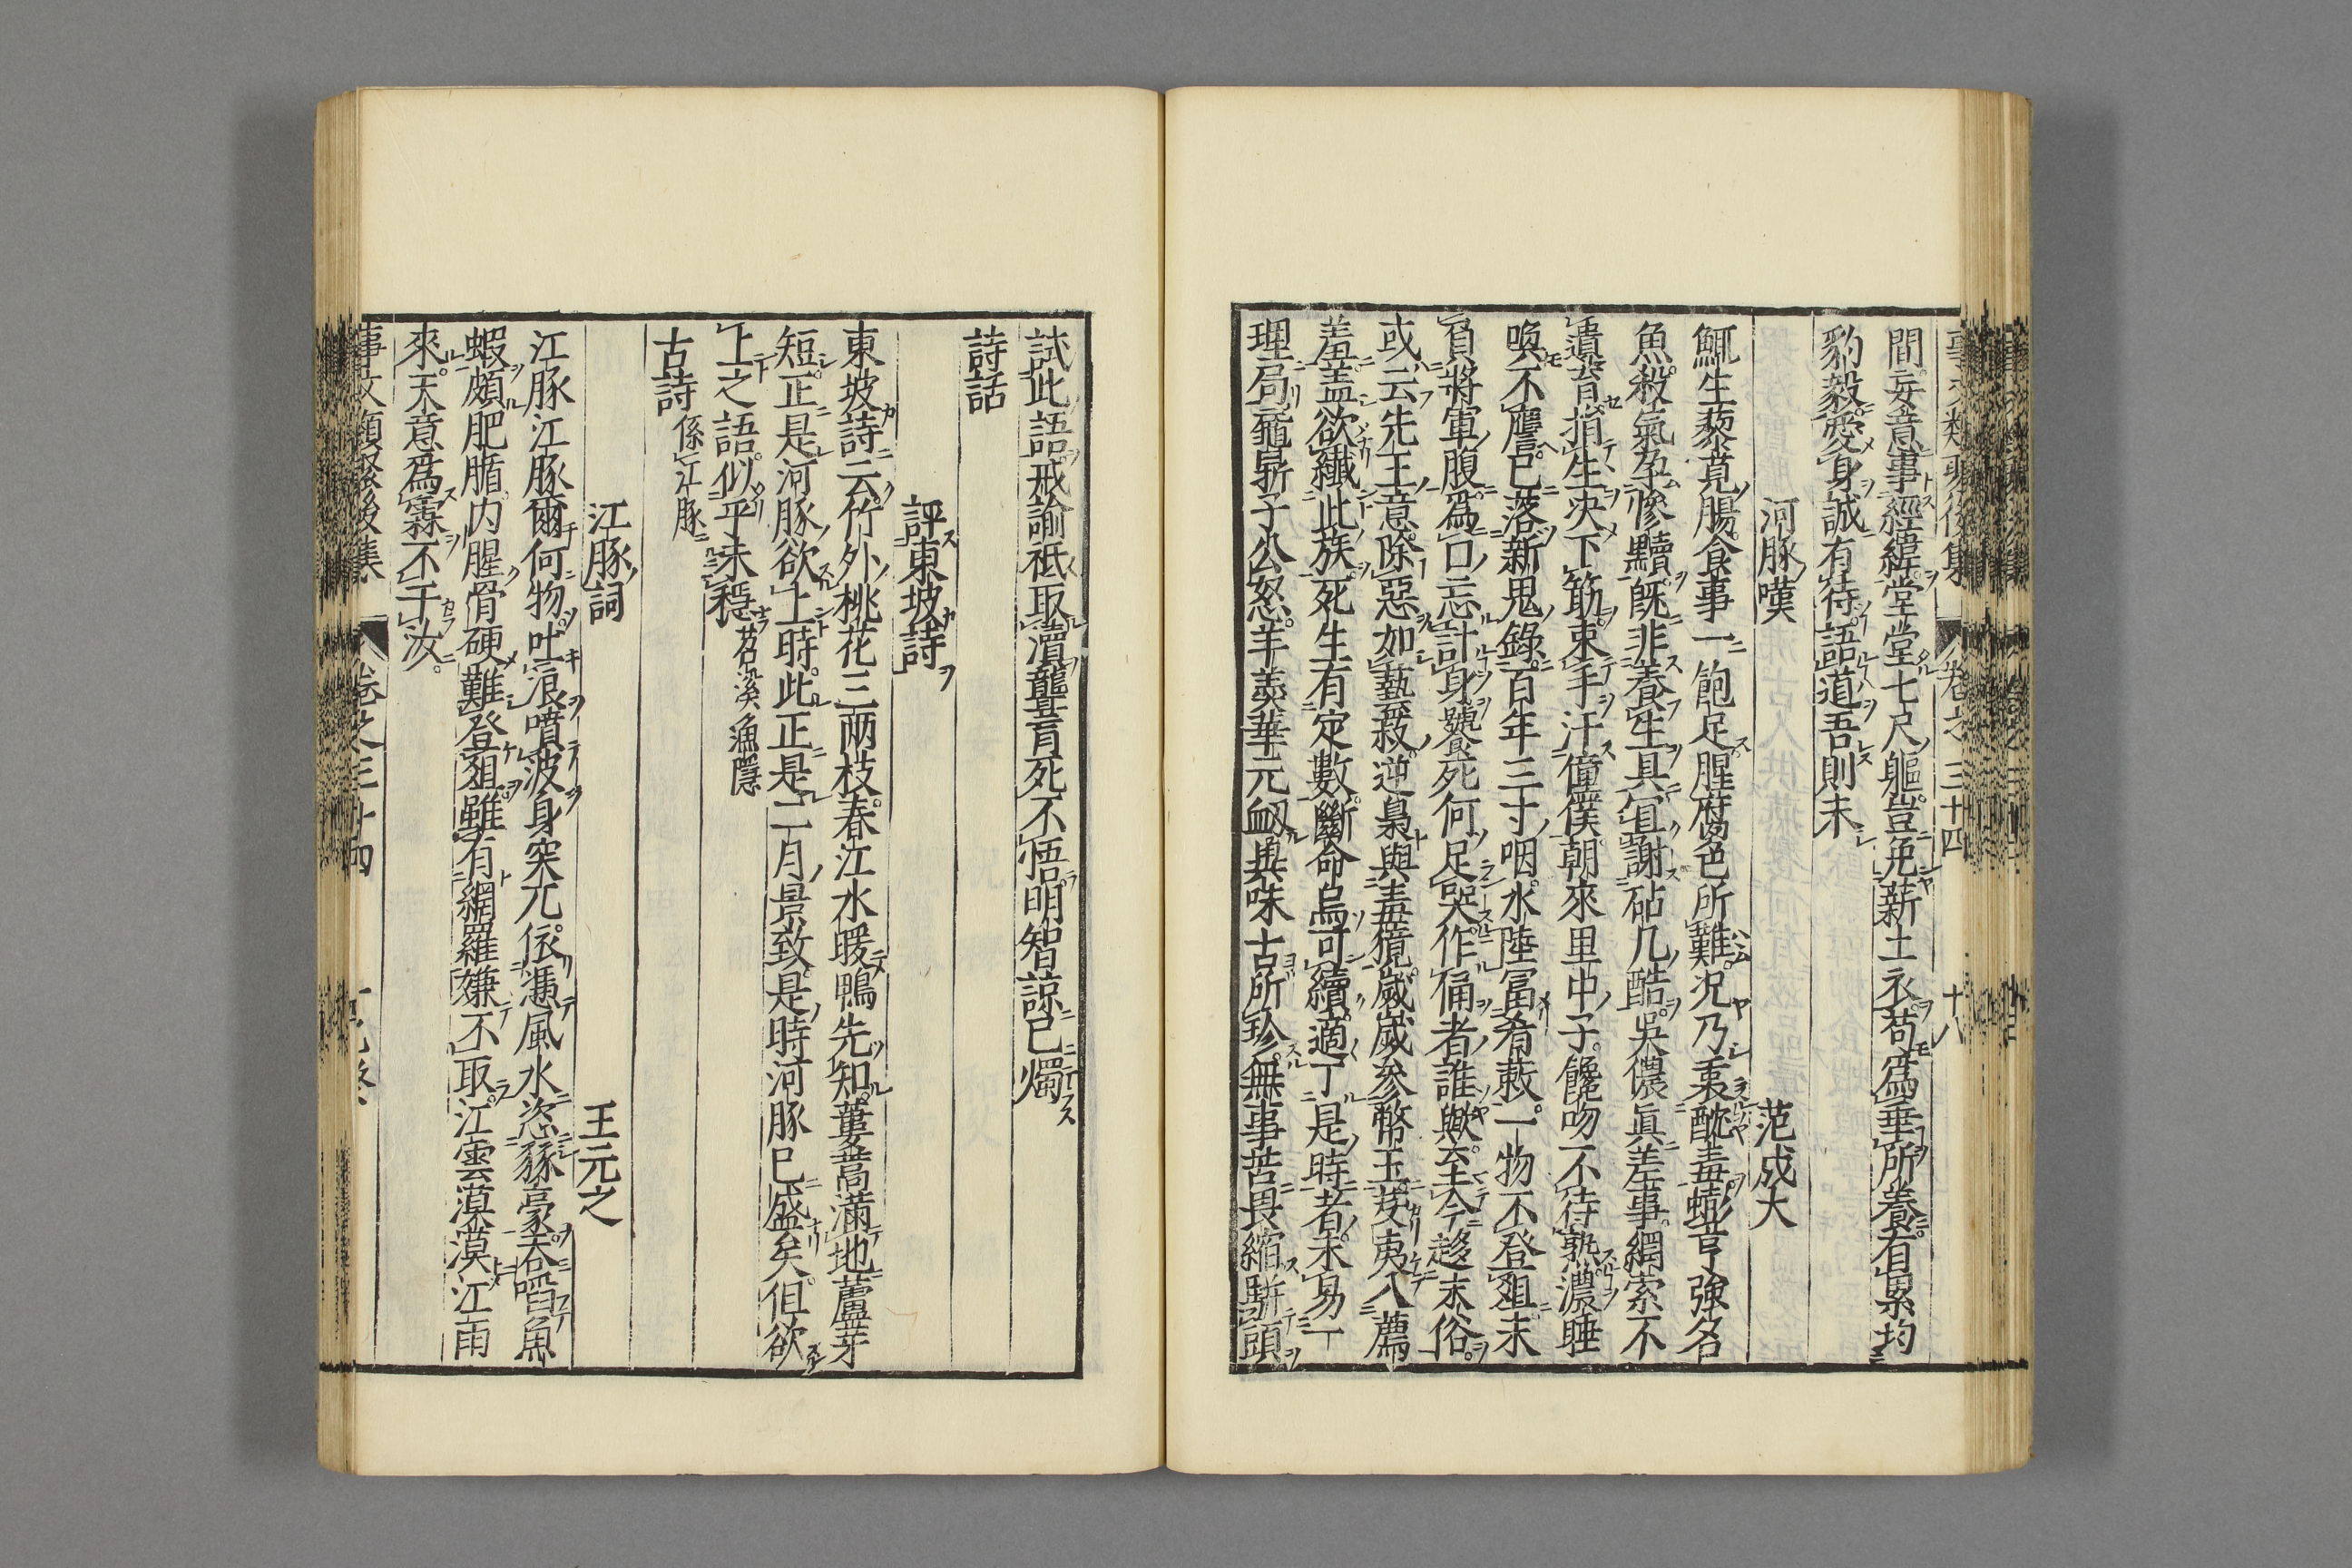 事文類聚後集 卷之三十四 十八
間妄意事經緯堂堂七尺軀豈免薪土衣苟爲垂所養有累均
豹毅愛身誠有待語道吾則未
河豚嘆 范成大
鯫生藜莧腸食事一飽足腥腐色所難况乃裹酖毒蟛亨強名
魚殺氣孕慘黷旣非養生具宜謝砧几酷吳儂眞差事網索不
遺育捐生決下筯束手汗僮僕朝來里中子饞吻不待熟濃睡
喚不譍已落新鬼錄百年三寸咽水陸富肴蔌一物不登俎未
負將軍腹爲口忘計身饕死何足哭作俑者誰歟至今趍末俗
或云先王意除惡如藝菽逆梟與毒獍歲歲參幣玉芟夷入薦
羞蓋欲殲此族死生有定數斷命烏可續適丁是時者未易一
理局黿鼎子公怒羊羹華元衂異味古所珍無事苦畏縮騈頭
試此語戒諭祇取瀆聾盲死不悟明智諒已燭
詩話
評東坡詩
東坡詩云竹外桃花三兩枝春江水暖鴨先知蔞蒿滿地蘆芽
短正是河豚欲上時此正是二月景致是時河豚已盛矣但欲
上之語似乎未穩 苕溪漁隱
古詩 係江豚
江豚詞 王元之
江豚江豚爾何物吐浪噴波身突兀依憑風水恣豩豪吞啗魚
蝦頗肥腯肉腥骨硬難登俎雖有網羅嫌不取江雲漠漠江雨
來天意爲霖不于汝
事文類聚後集 卷之三十四